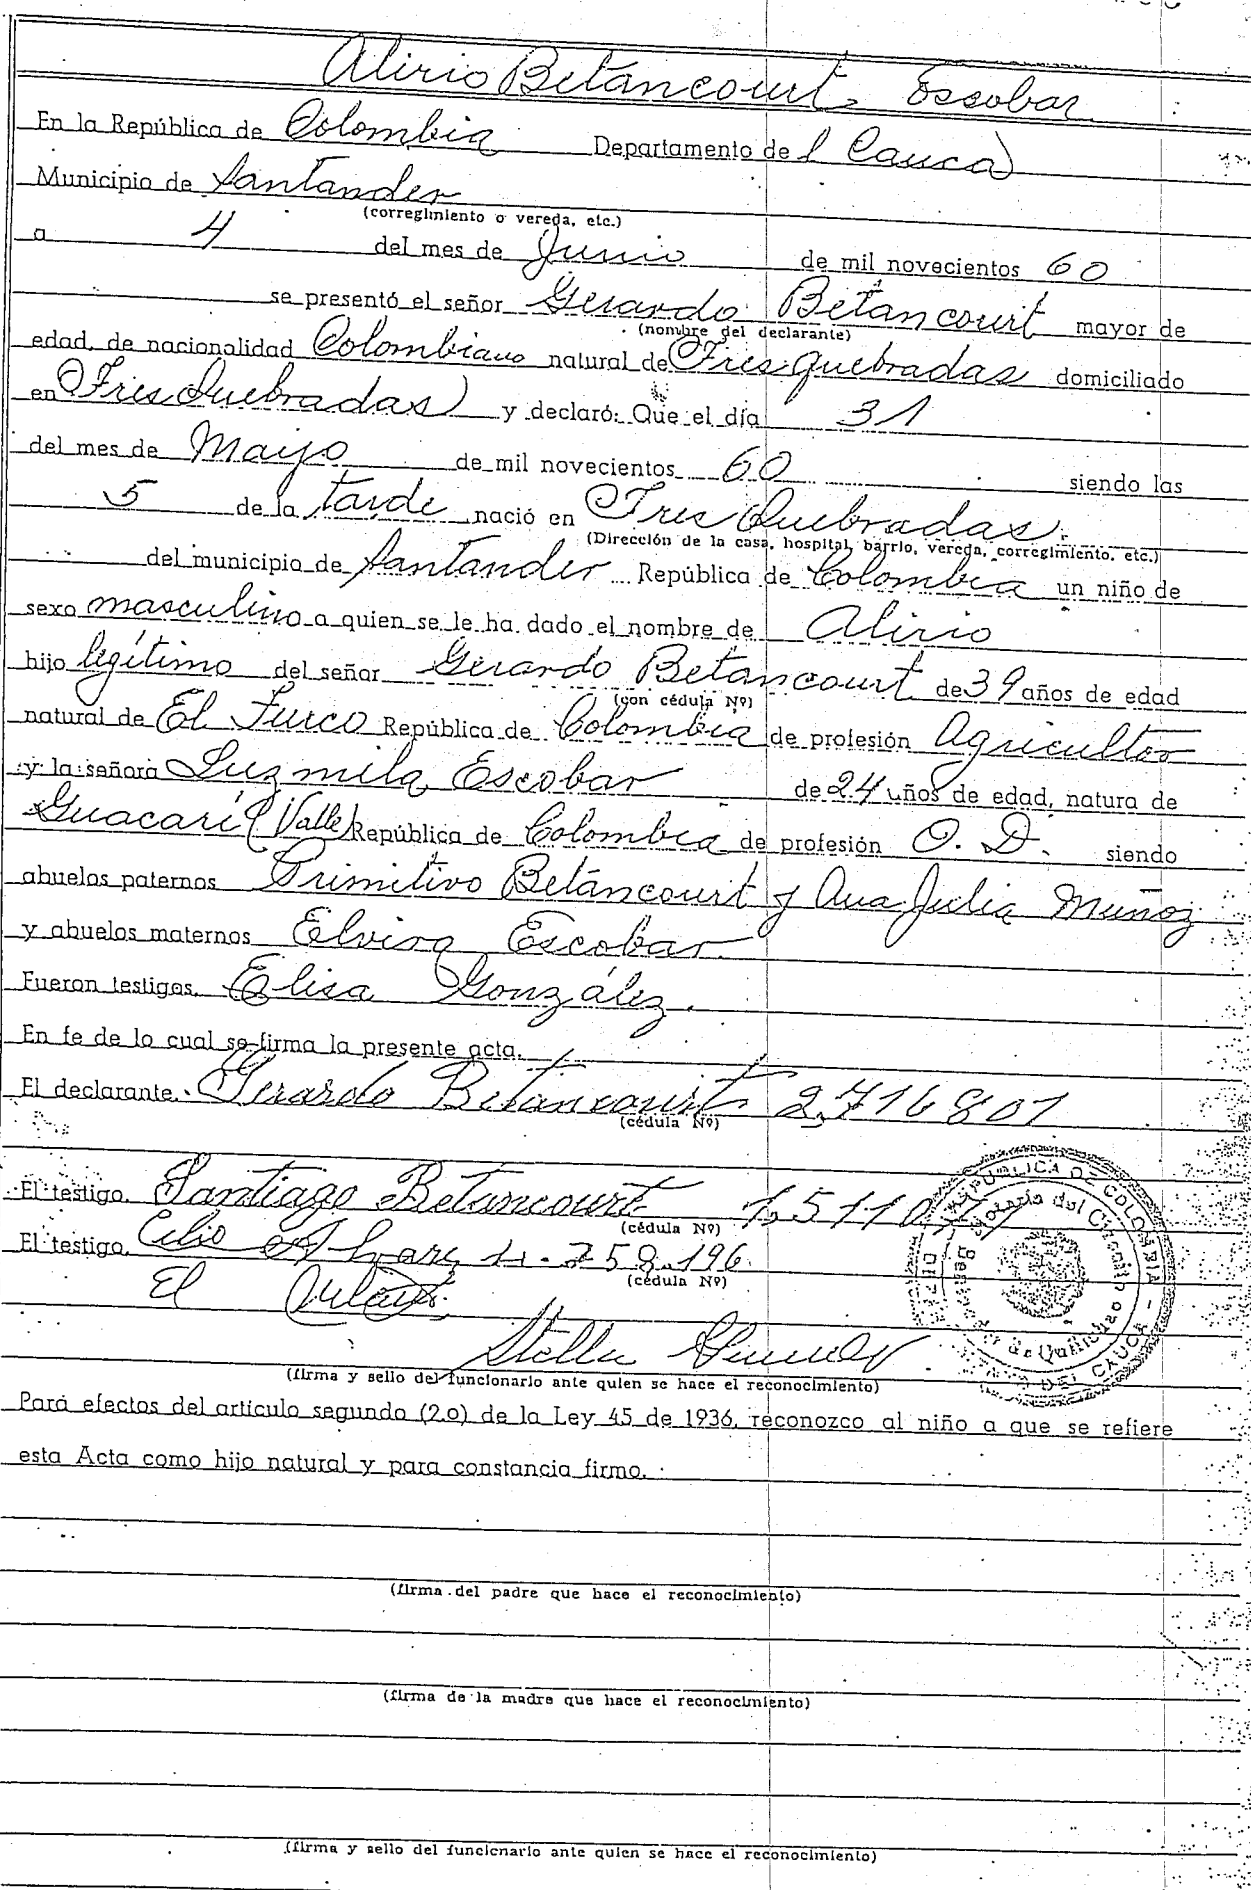 Alirio Betancourt Escobar
En la República de Colombia Departamento del Cauca
Municipio de Santander
(corregimiento o vereda, etc.)
a 4 del mes de Junio de mil novecientos 60
se presentó el señor Gerardo Betancourt mayor de
(nombre del declarante)
edad, de nacionalidad Colombiano natural de Tres quebradas domiciliado
en Tres Quebradas y declaró: Que el día 31
del mes de Mayo de mil novecientos 60 siendo las
5 de la tarde nació en Tres Quebradas.
(Dirección de la casa, hospital, barrio, vereda, corregimiento, etc.)
del municipio de Santander República de Colombia un niño de
sexo masculino a quien se le ha dado el nombre de Alirio
hijo legítimo del señor Gerardo Betancourt de 39 años de edad
(con cédula Nº)
natural de El Turco República de Colombia de profesión Agricultor
y la señora Luzmila Escobar de 24 años de edad, natura de
Guacarí (Valle) República de Colombia de profesión O. D. siendo
abuelos paternos Primitivo Betáncourt y Ana Julia Muñoz
y abuelos maternos Elvira Escobar
Fueron testigos. Elisa González.
En fe de lo cual se firma la presente acta.
El declarante. Gerardo Betancourt 2,716801
(cédula Nº)
El testigo. Santiago Betancourt 1,5110
(cédula Nº)
El testigo. Celio 258.196
(cédula Nº)
El
Stella
(firma y sello del funcionario ante quien se hace el reconocimiento)
REPUBLICA DE COLOMBIA
Notario del Circuito
DEL CAUCA
Para efectos del artículo segundo (2.o) de la Ley 45 de 1936, reconozco al niño a que se refiere
esta Acta como hijo natural y para constancia firmo.
(firma del padre que hace el reconocimiento)
(firma de la madre que hace el reconocimiento)
(firma y sello del funcionario ante quien se hace el reconocimiento)